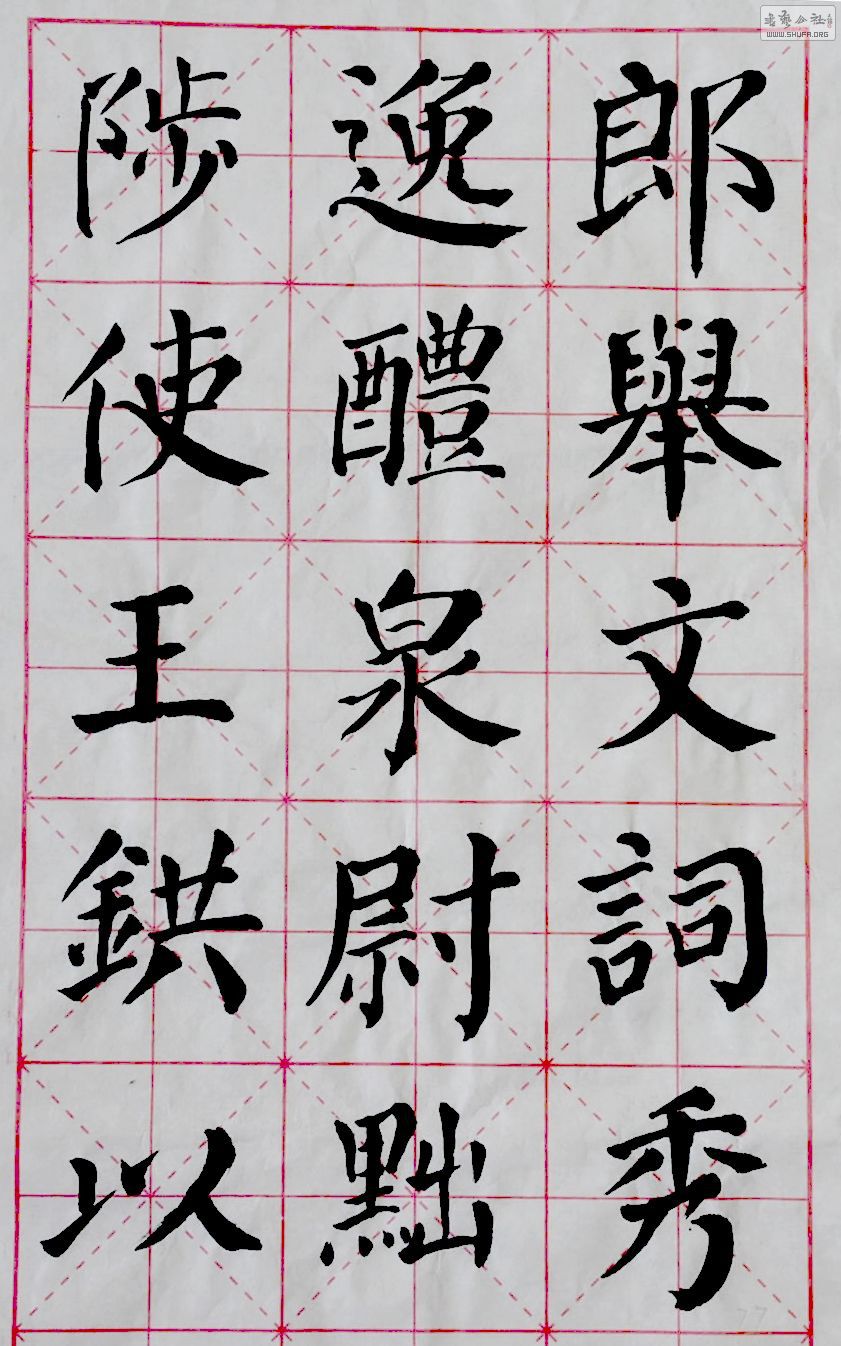 郎舉文詞秀
逸醴泉尉黜
陟使王鉷以
書藝公社
WWW.SHUFA.ORG
77